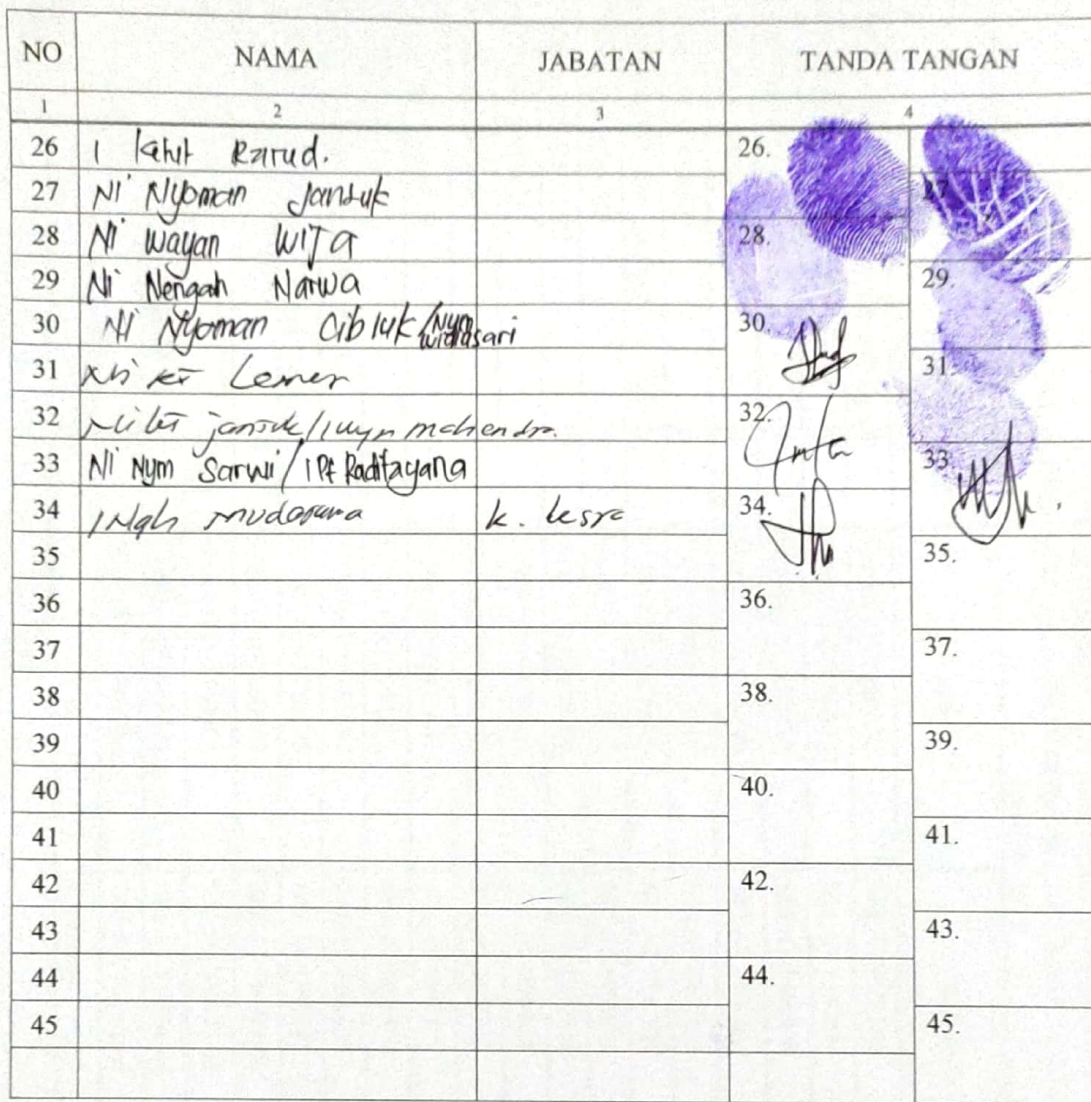 NO NAMA JABATAN TANDA TANGAN
1 2 3 4
26 I Ketut Rarud. 26.
27 Ni Nyoman Jansuk 27
28 Ni Wayan Wija 28.
29 Ni Nengah Narwa 29.
30 Ni Nyoman Cibluk/Nym Widiasari 30.
31 Ni Kt Lemer 31
32 Ni Kt jansuk/I wyn mahendra. 32.
33 Ni Nym Sarwi/I Pt Raditayana 33
34 I Ngh mudarana k. kesra 34.
35 35.
36 36.
37 37.
38 38.
39 39.
40 40.
41 41.
42 42.
43 43.
44 44.
45 45.